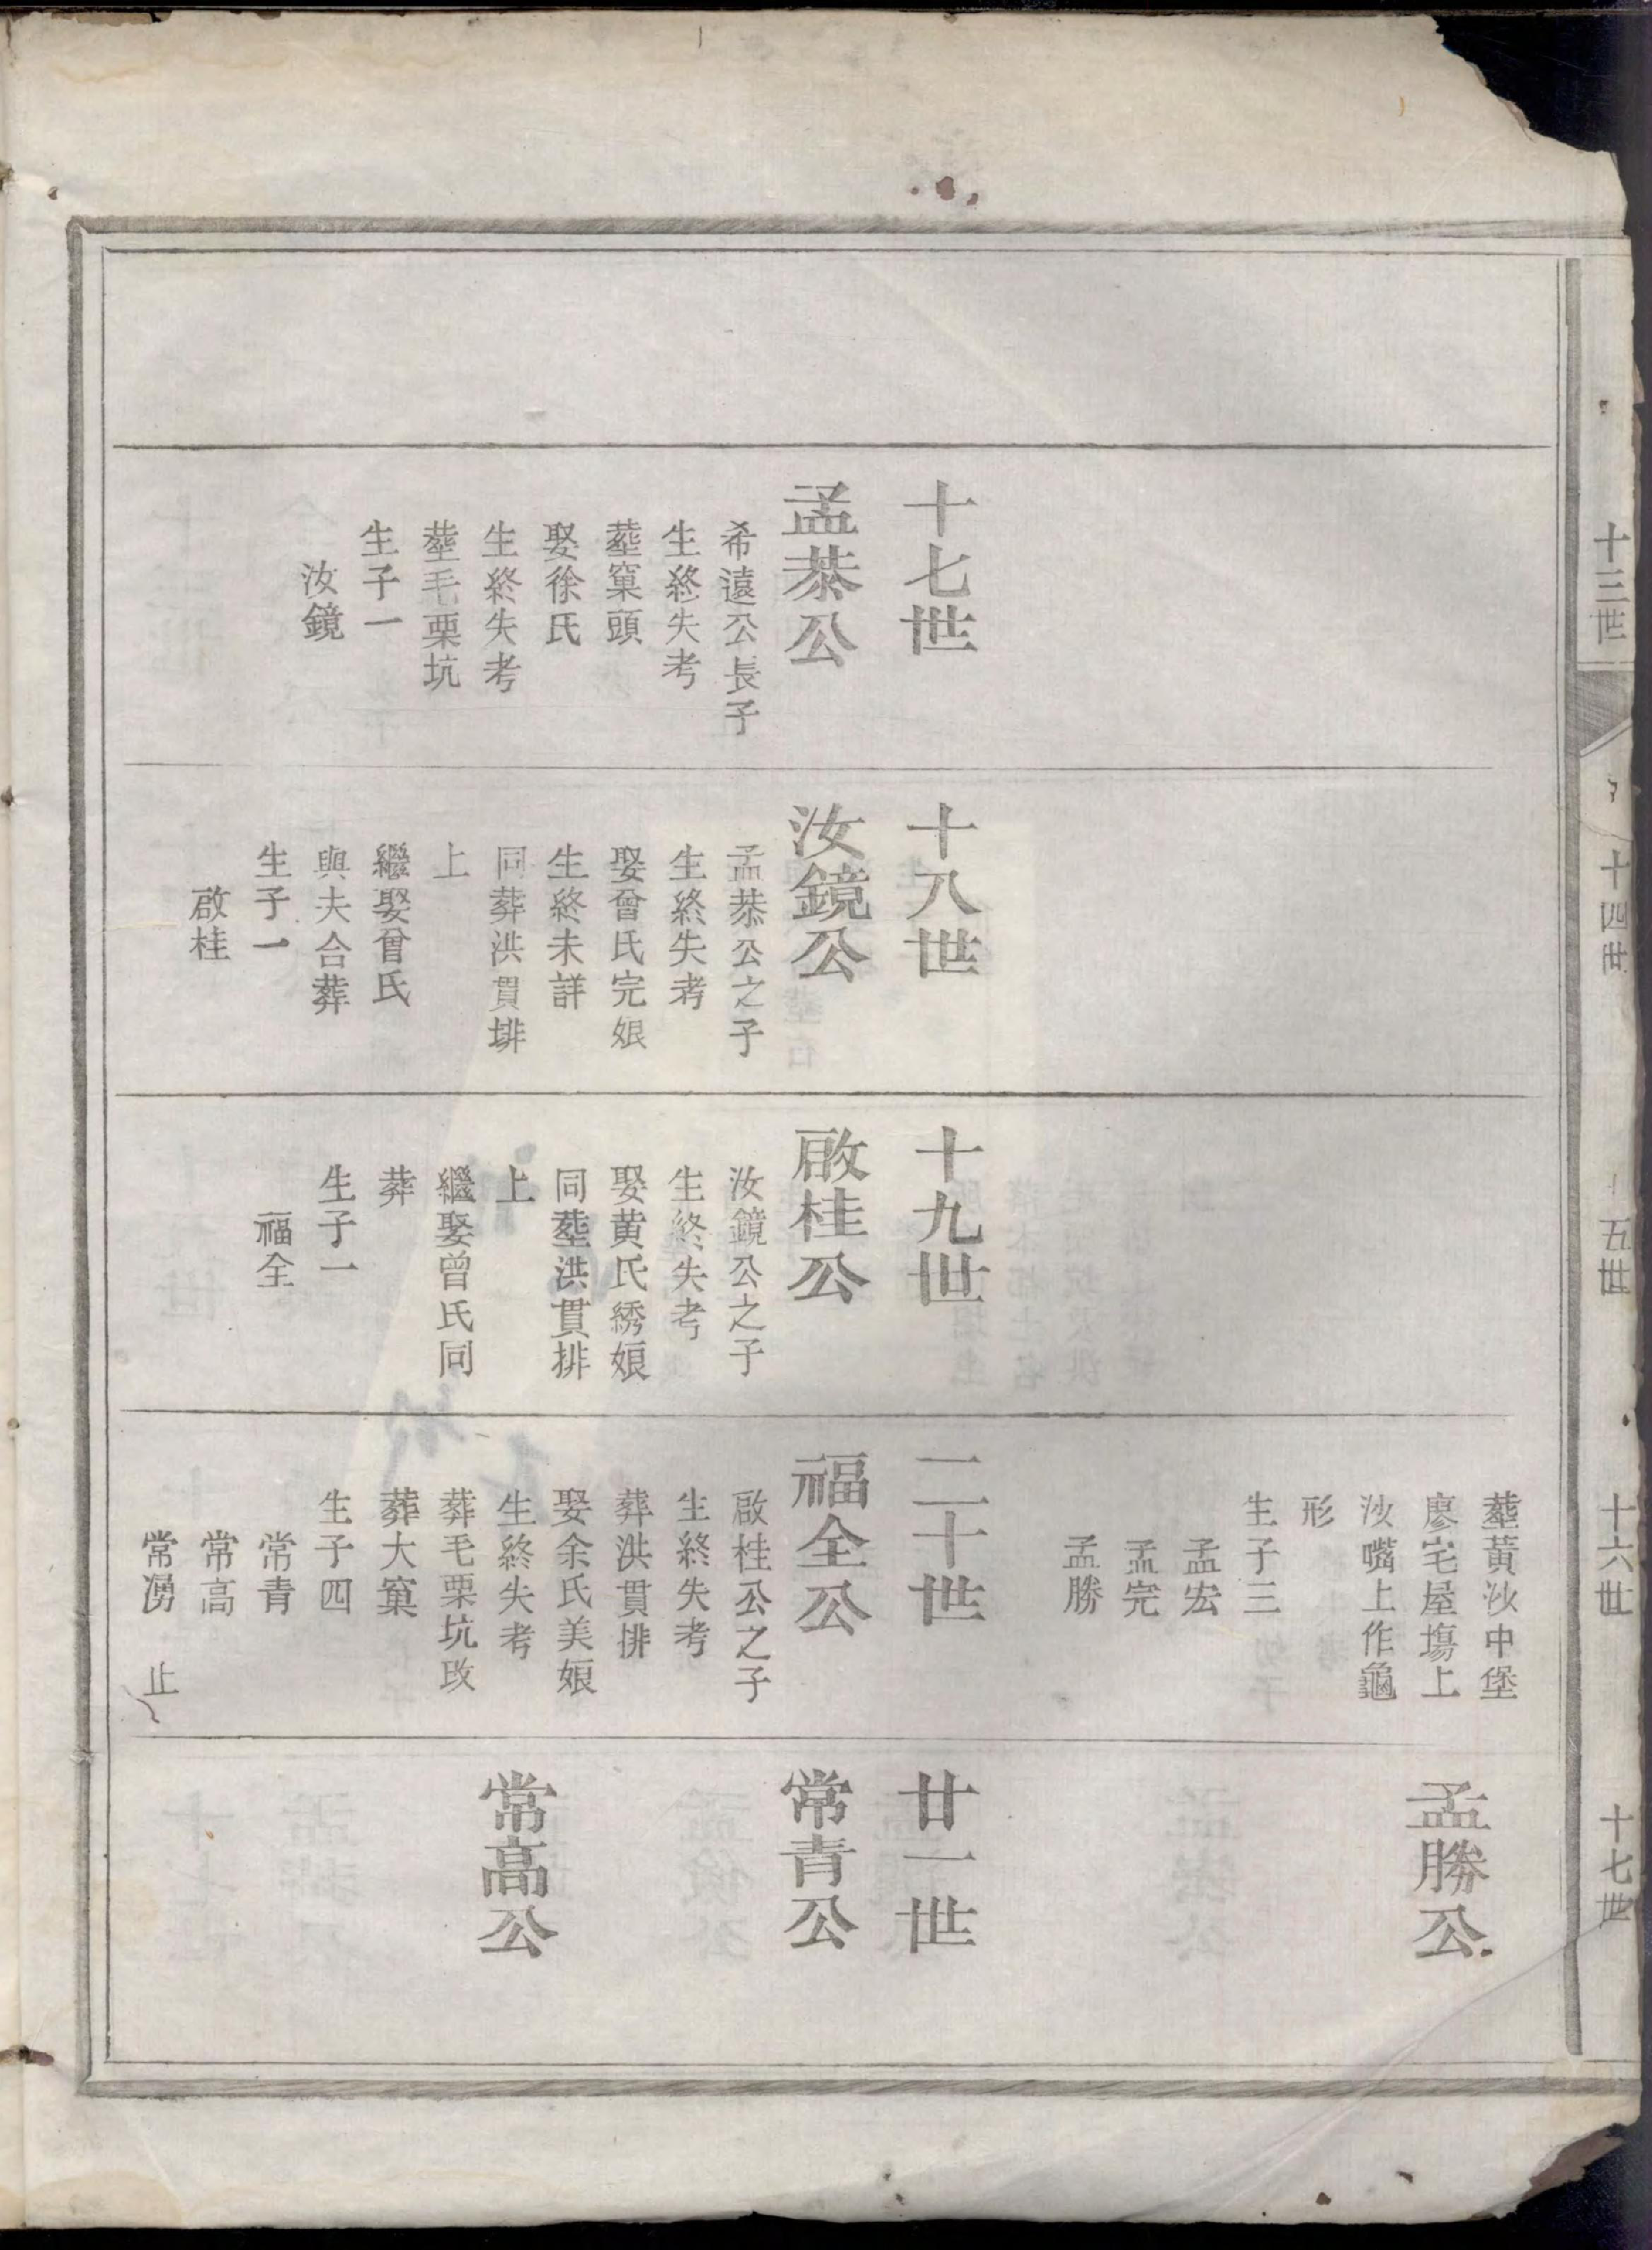 十三世
十四世
十五世
十六世
十七世
十七世
孟恭公
希遠公長子
生終失考
塟窠頭
娶徐氏
生終失考
塟毛栗坑
生子一
汝鏡
十八世
汝鏡公
孟恭公之子
生終失考
娶曾氏完娘
生終未詳
同葬洪貫排
上
繼娶曾氏
與夫合葬
生子一
啟桂
十九世
啟桂公
汝鏡公之子
生終失考
娶黄氏綉娘
同塟洪貫排
上
繼娶曾氏同
葬
生子一
福全
塟黃沙中堡
廖宅屋塲上
沙嘴上作龜
形
生子三
孟宏
孟完
孟勝
二十世
福全公
啟桂公之子
生終失考
葬洪貫排
娶余氏美娘
生終失考
葬毛栗坑改
葬大窠
生子四
常青
常高
常湧 止
孟勝公
廿一世
常青公
常高公